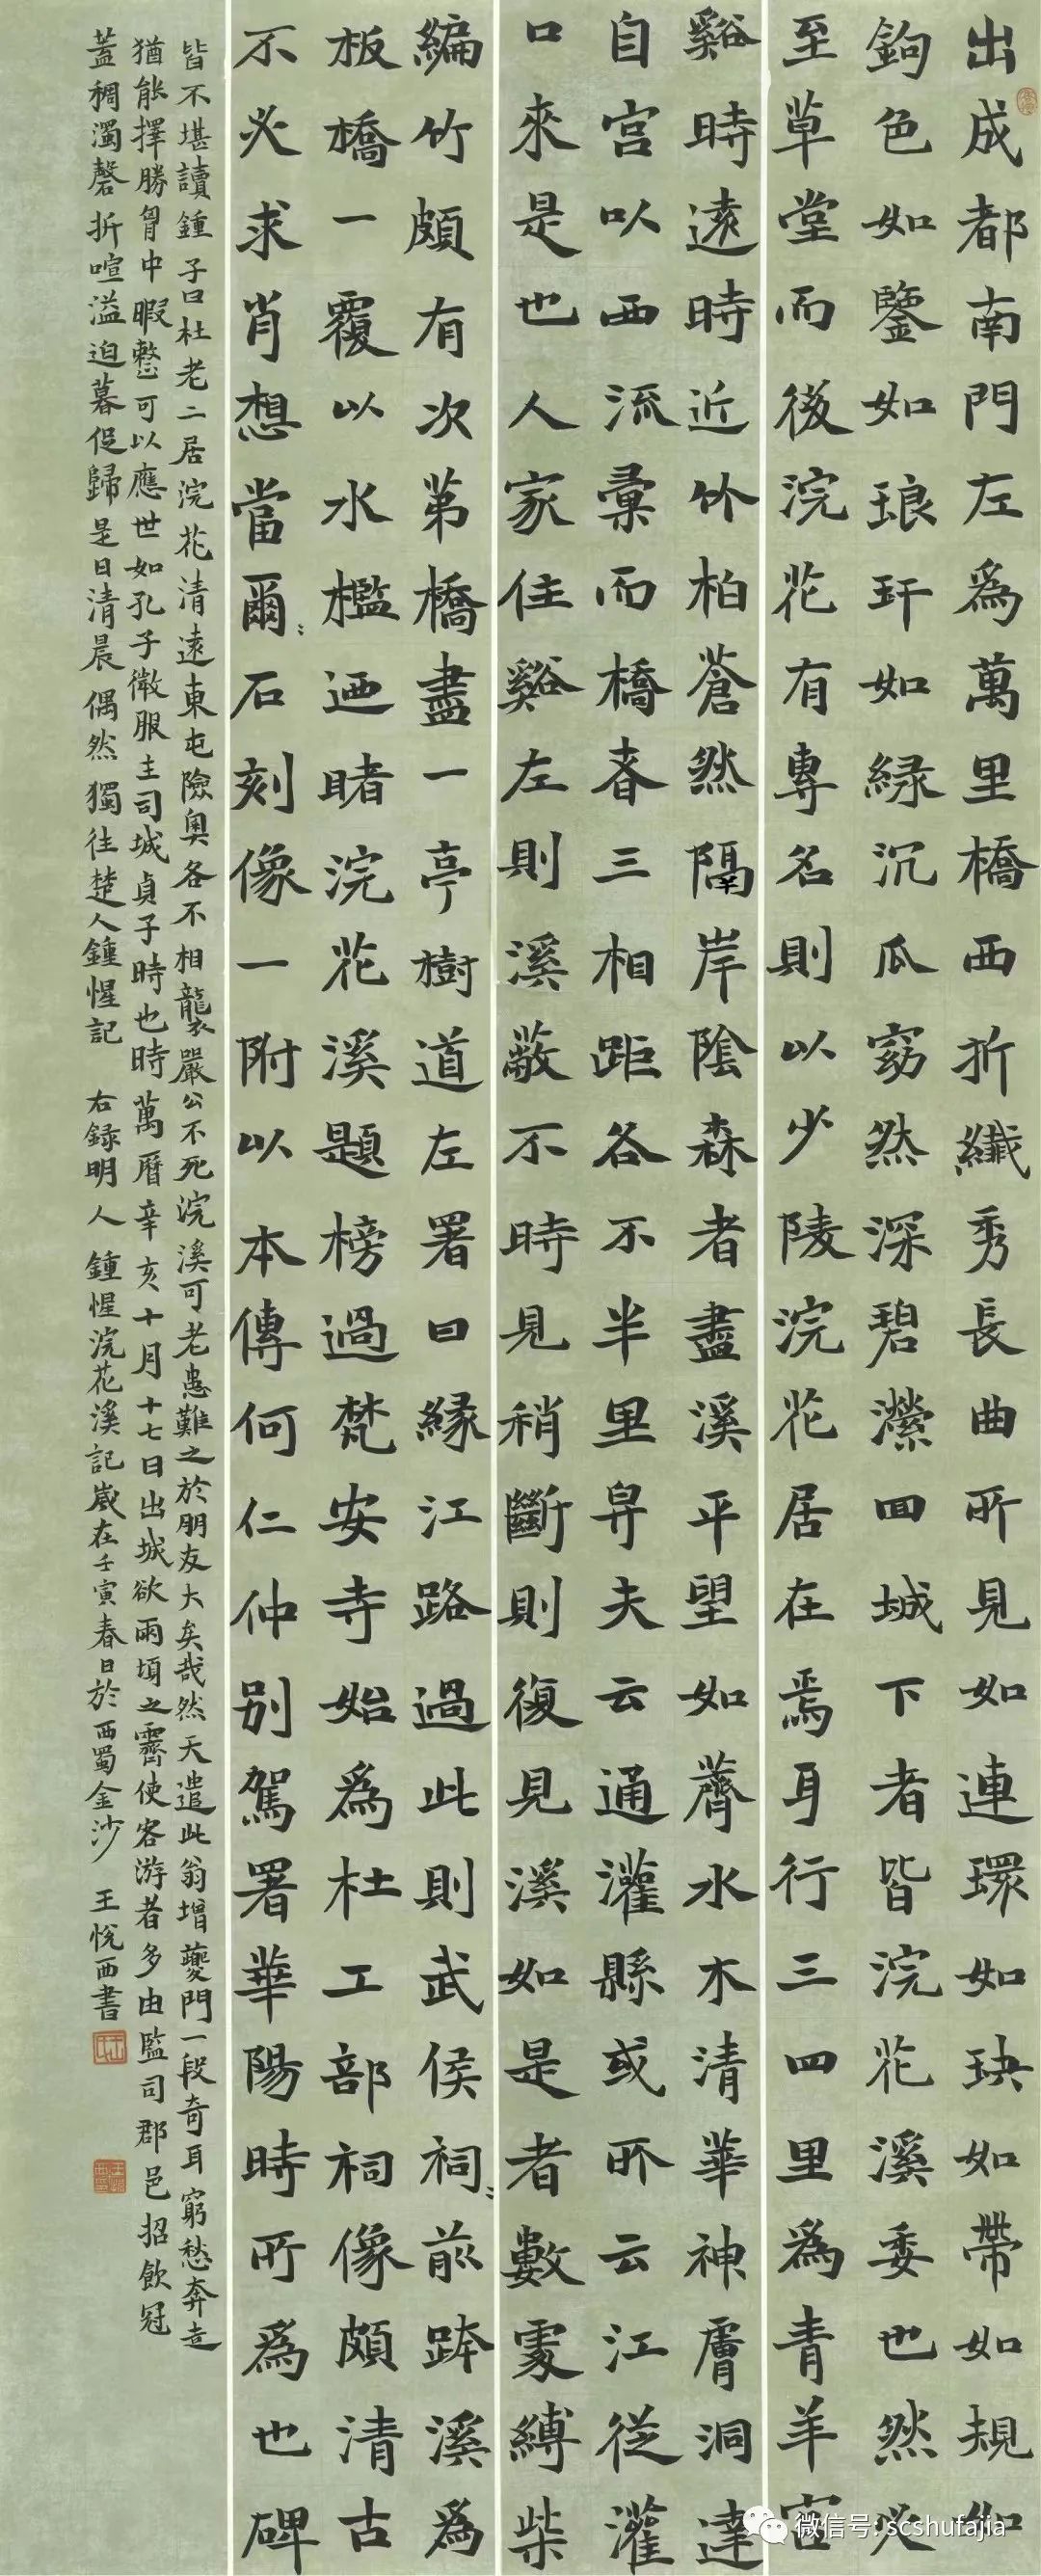 出成都南門左為萬里橋西折纖秀長曲所見如連環如玦如帶如規如
鉤色如鑒如琅玕如綠沉瓜窈然深碧瀠回城下者皆浣花溪委也然必
至草堂而後浣花有專名則以少陵浣花居在焉耳行三四里為青羊宮
谿時遠時近竹柏蒼然隔岸陰森者盡溪平望如薺水木清華神膚洞達
自宮以西流彙而橋者三相距各不半里舁夫云通灌縣或所云江從灌
口來是也人家住谿左則溪蔽不時見稍斷則復見溪如是者數處縛柴
編竹頗有次第橋盡一亭樹道左署曰緣江路過此則武侯祠〻前跨溪為
板橋一覆以水檻迺睹浣花溪題榜過梵安寺始為杜工部祠像頗清古
不必求肖想當爾〻石刻像一附以本傳何仁仲別駕署華陽時所為也碑
皆不堪讀鍾子曰杜老二居浣花清遠東屯險奧各不相襲嚴公不死浣溪可老患難之於朋友大矣哉然天遣此翁增夔門一段奇耳窮愁奔走
猶能擇勝胷中暇整可以應世如孔子微服主司城貞子時也時萬曆辛亥十月十七日出城欲雨頃之霽使客游者多由監司郡邑招飲冠
蓋稠濁磬折喧溢迫暮促歸是日清晨偶然獨往楚人鍾惺記 右錄明人鍾惺浣花溪記歲在壬寅春日於西蜀金沙 王悅西書
微信号: scshufajia